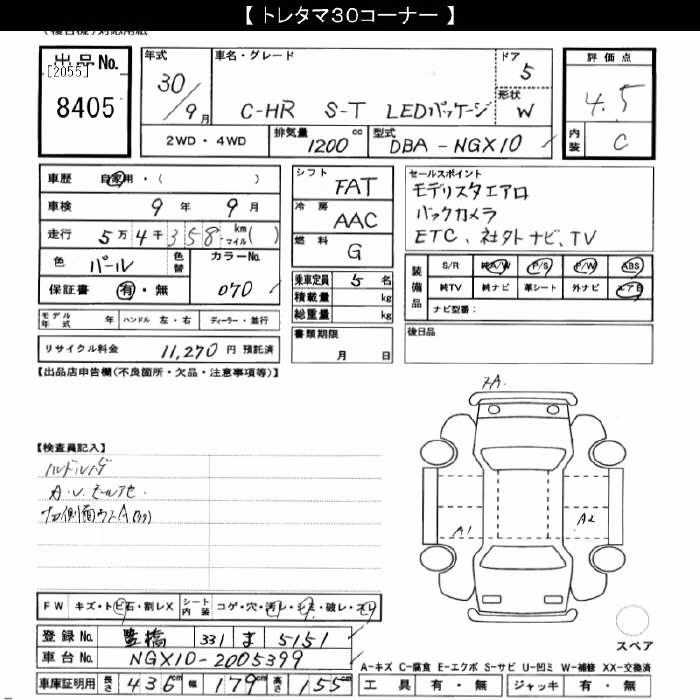 【 トレタマ30コーナー 】
出品No.
[2055]
8405
年式
30/9月
車名・グレード
C-HR S-T LEDパッケージ
ドア
5
形状
W
評価点
4.5
内装
C
2WD・4WD
排気量 1200 cc
型式 DBA-NGX10
車歴 自家用・( )
車検 9年 9月
走行 5万4千358 km マイル( )
色 パール 色替 カラーNo. 070
保証書 有・無
モデル年式 年 ハンドル 左・右 ディーラー・並行
リサイクル料金 11,270 円 預託済
シフト FAT
冷房 AAC
燃料 G
乗車定員 5 名
積載量 kg
総重量 kg
書類期限
月 日
セールスポイント
モデリスタエアロ
バックカメラ
ETC、社外ナビ、TV
装備品
S/R 純A/W P/S P/W ABS
純TV 純ナビ 革シート 外ナビ エアB
ナビ型番:
後日品
【出品店申告欄(不良箇所・欠品・注意事項等)】
【検査員記入】
ハンドルスレ
7A.
A1
A2
スペア
FW キズ・トビ石・割レX シート内装 コゲ・穴・汚レ・シミ・破レ・スレ
登録No. 豊橋 331 ま 5151
車台No. NGX10-2005399
車庫証明用 長さ 436cm 幅 179cm 高さ 155cm
A-キズ C-腐食 E-エクボ S-サビ U-凹ミ W-補修 XX-交換済
工具 有・無 ジャッキ 有・無